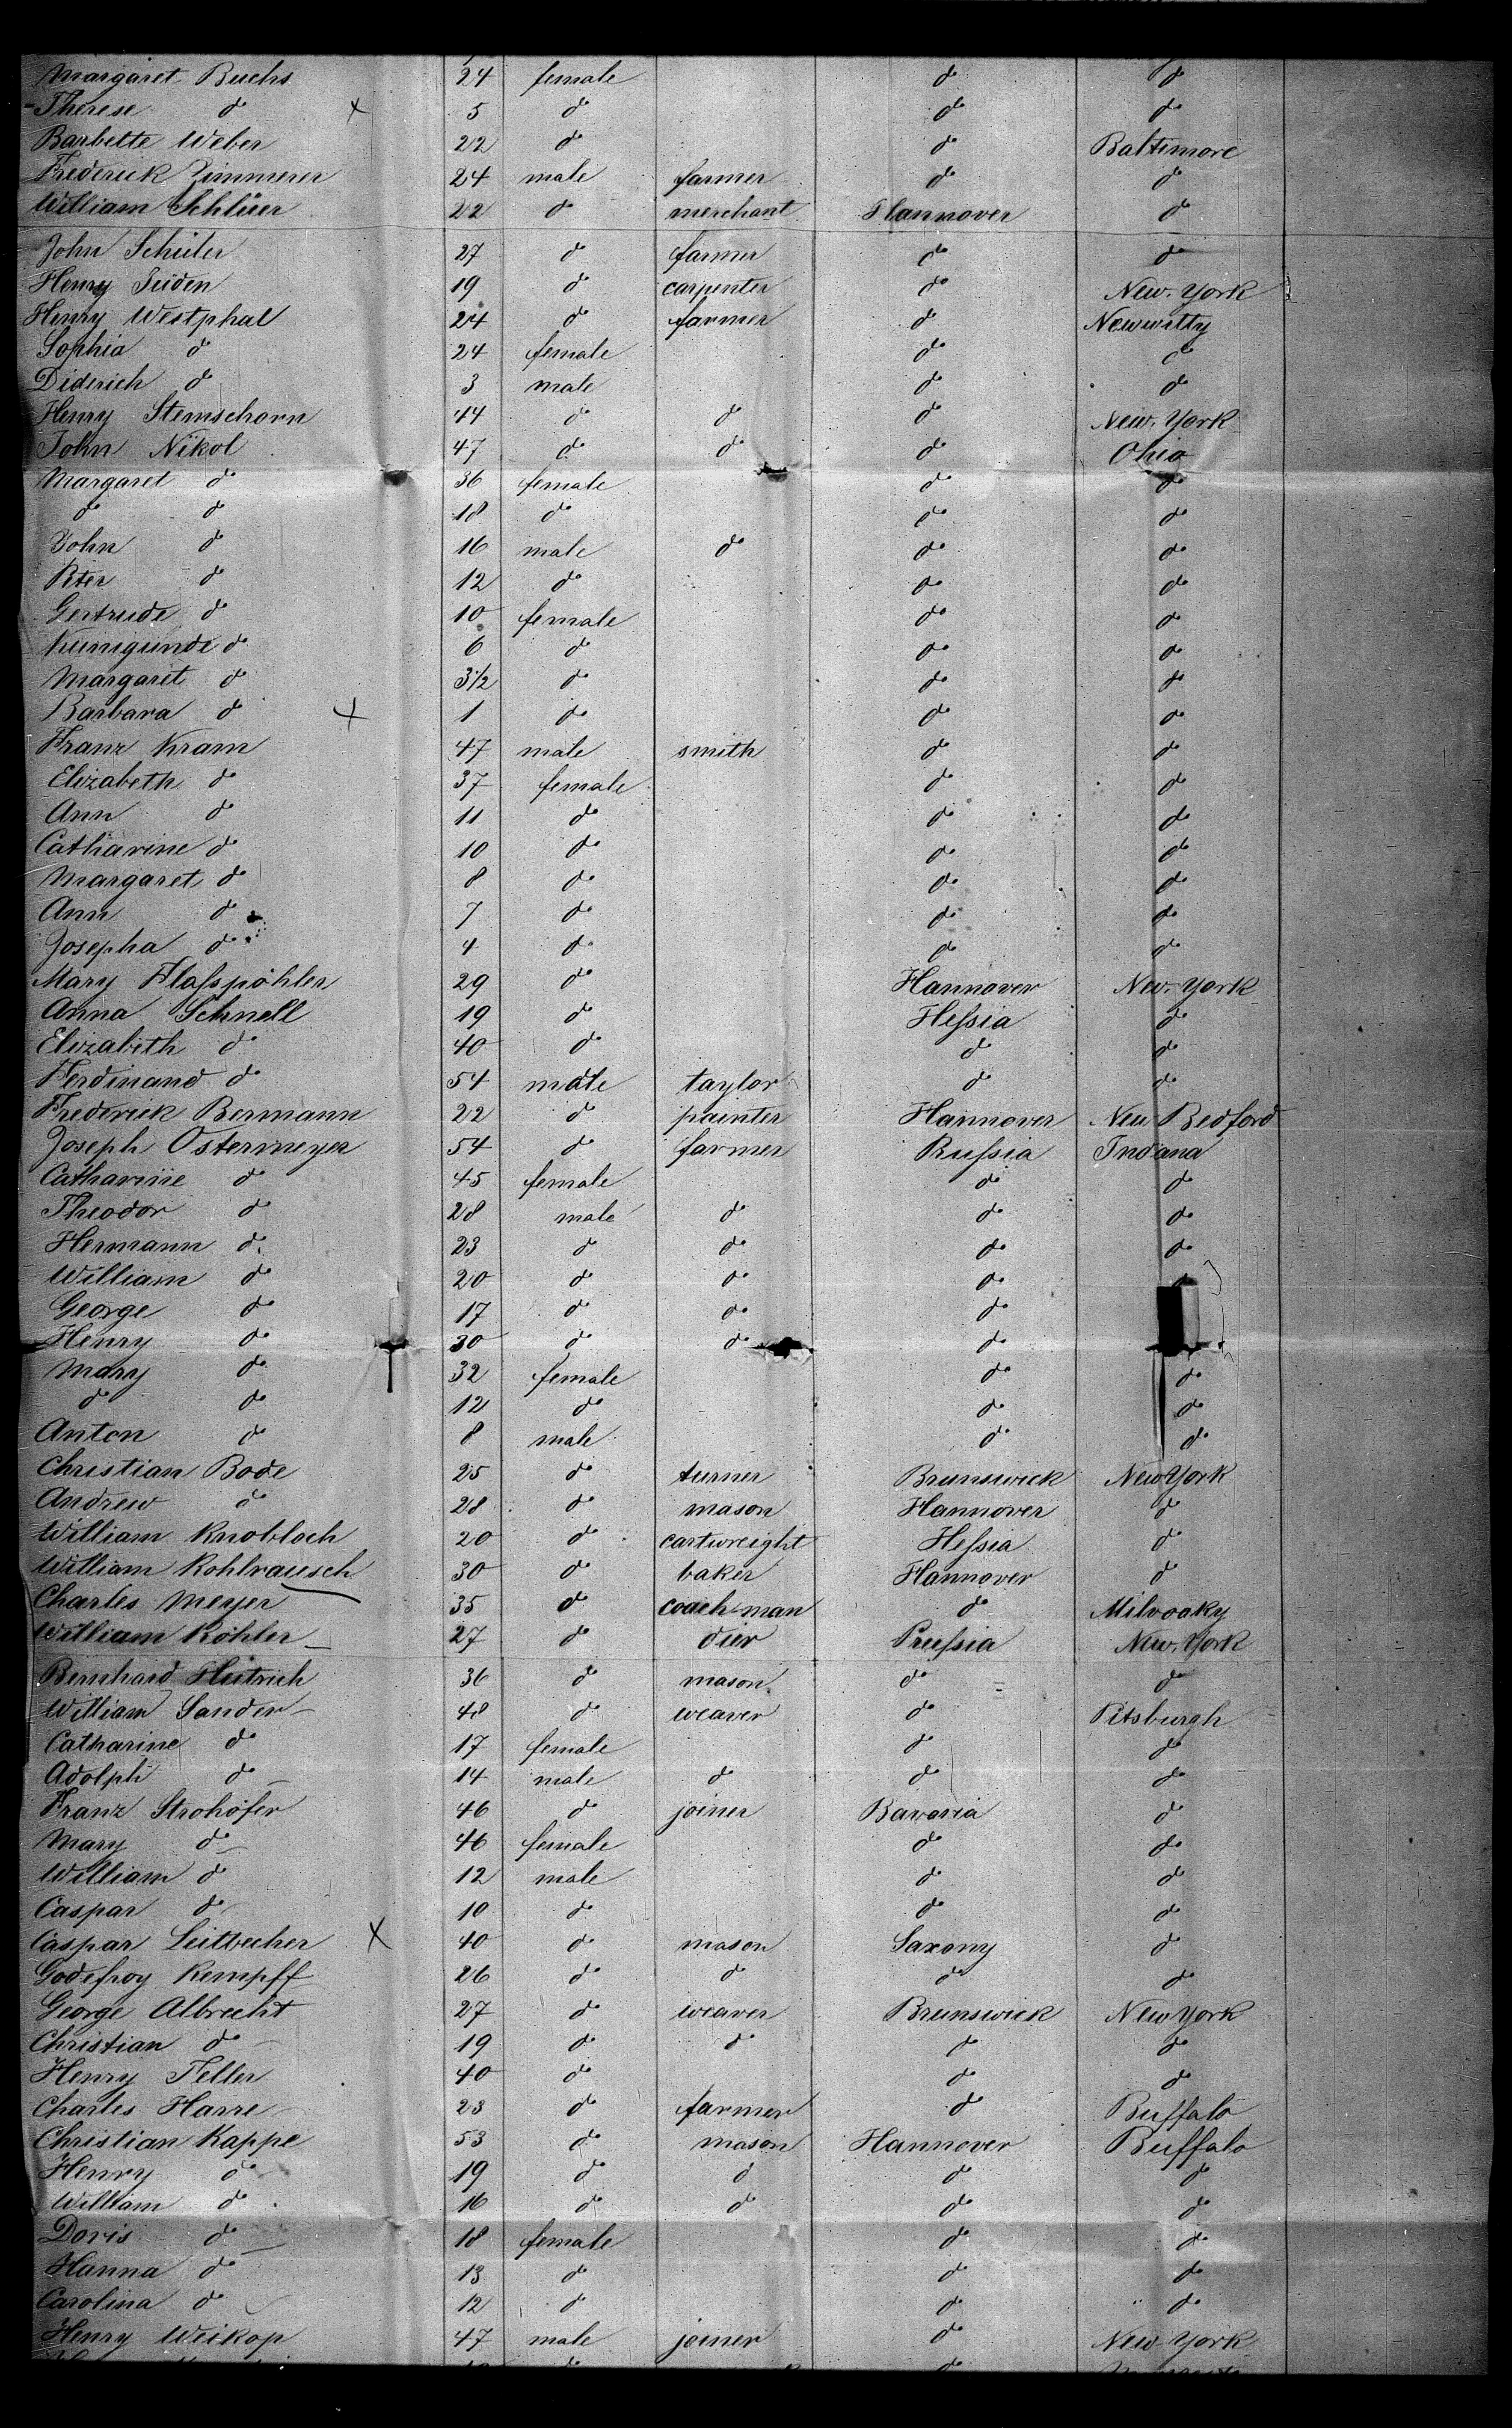 Margaret Buchs 24 female do do
Therese do 5 do do do
Barbette Weber 22 do do Baltimore
Frederick Zimmerer 24 male farmer do do
William Schlüer 22 do merchant Hannover do
John Schüler 27 do farmer do do
Henry Süden 19 do carpenter do New-York
Henry Westphal 24 do farmer do Newwitty
Sophia do 24 female do do
Diderich do 3 male do do
Henry Stemschorn 44 do do do New-York
John Nikol 47 do do do Ohio
Margaret do 36 female do do
do do 18 do do do
John do 16 male do do do
Peter do 12 do do do
Gertrude do 10 female do do
Kunigunde do 6 do do do
Margaret do 3 1/2 do do do
Barbara do 1 do do do
Franz Kram 47 male smith do do
Elizabeth do 37 female do do
Ann do 11 do do do
Catharine do 10 do do do
Margaret do 8 do do do
Ann do 7 do do do
Josepha do 4 do do do
Mary Flaßpöhler 29 do Hannover New-York
Anna Schnell 19 do Heßia do
Elizabeth do 40 do do do
Ferdinand do 54 male taylor do do
Frederick Bermann 22 do painter Hannover New Bedford
Joseph Ostermeyer 54 do farmer Rußia Indiana
Catharine do 45 female do do
Theodor do 28 male do do do
Hermann do 23 do do do do
William do 20 do do do do
George do 17 do do do
Henry do 30 do do do
Mary do 32 female do do
do do 12 do do do
Anton do 8 male do do
Christian Bode 25 do turner Brunswick New York
Andrew do 28 do mason Hannover do
William Knobloch 20 do cartwreight Heßia do
William Kohlrausch 30 do baker Hannover do
Charles Meyer 35 do coach-man do Milvoaky
William Köhler 27 do dier Preußia New-York
Bernhard Hütrich 36 do mason do do
William Sander 48 do weaver do Pitsburgh
Catharine do 17 female do do
Adolph do 14 male do do do
Franz Strohöfer 46 do joiner Bavaria do
Mary do 46 female do do
William do 12 male do do
Caspar do 10 do do do
Caspar Leitbecher 40 do mason Saxony do
Godefroy Kempff 26 do do do do
George Albrecht 27 do weaver Brunswick New York
Christian do 19 do do do do
Henry Teller 40 do do do
Charles Harre 23 do farmer do Buffalo
Christian Kappe 53 do mason Hannover Buffalo
Henry do 19 do do do do
William do 16 do do do do
Doris do 18 female do do
Hanna do 13 do do do
Carolina do 12 do do do
Henry Weikop 47 male joiner do New-York